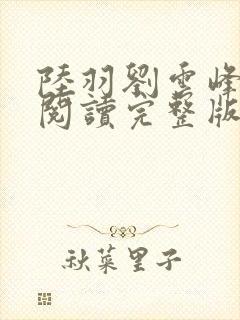 陸羽劉雲峰
閱讀完整版
秋菜里子